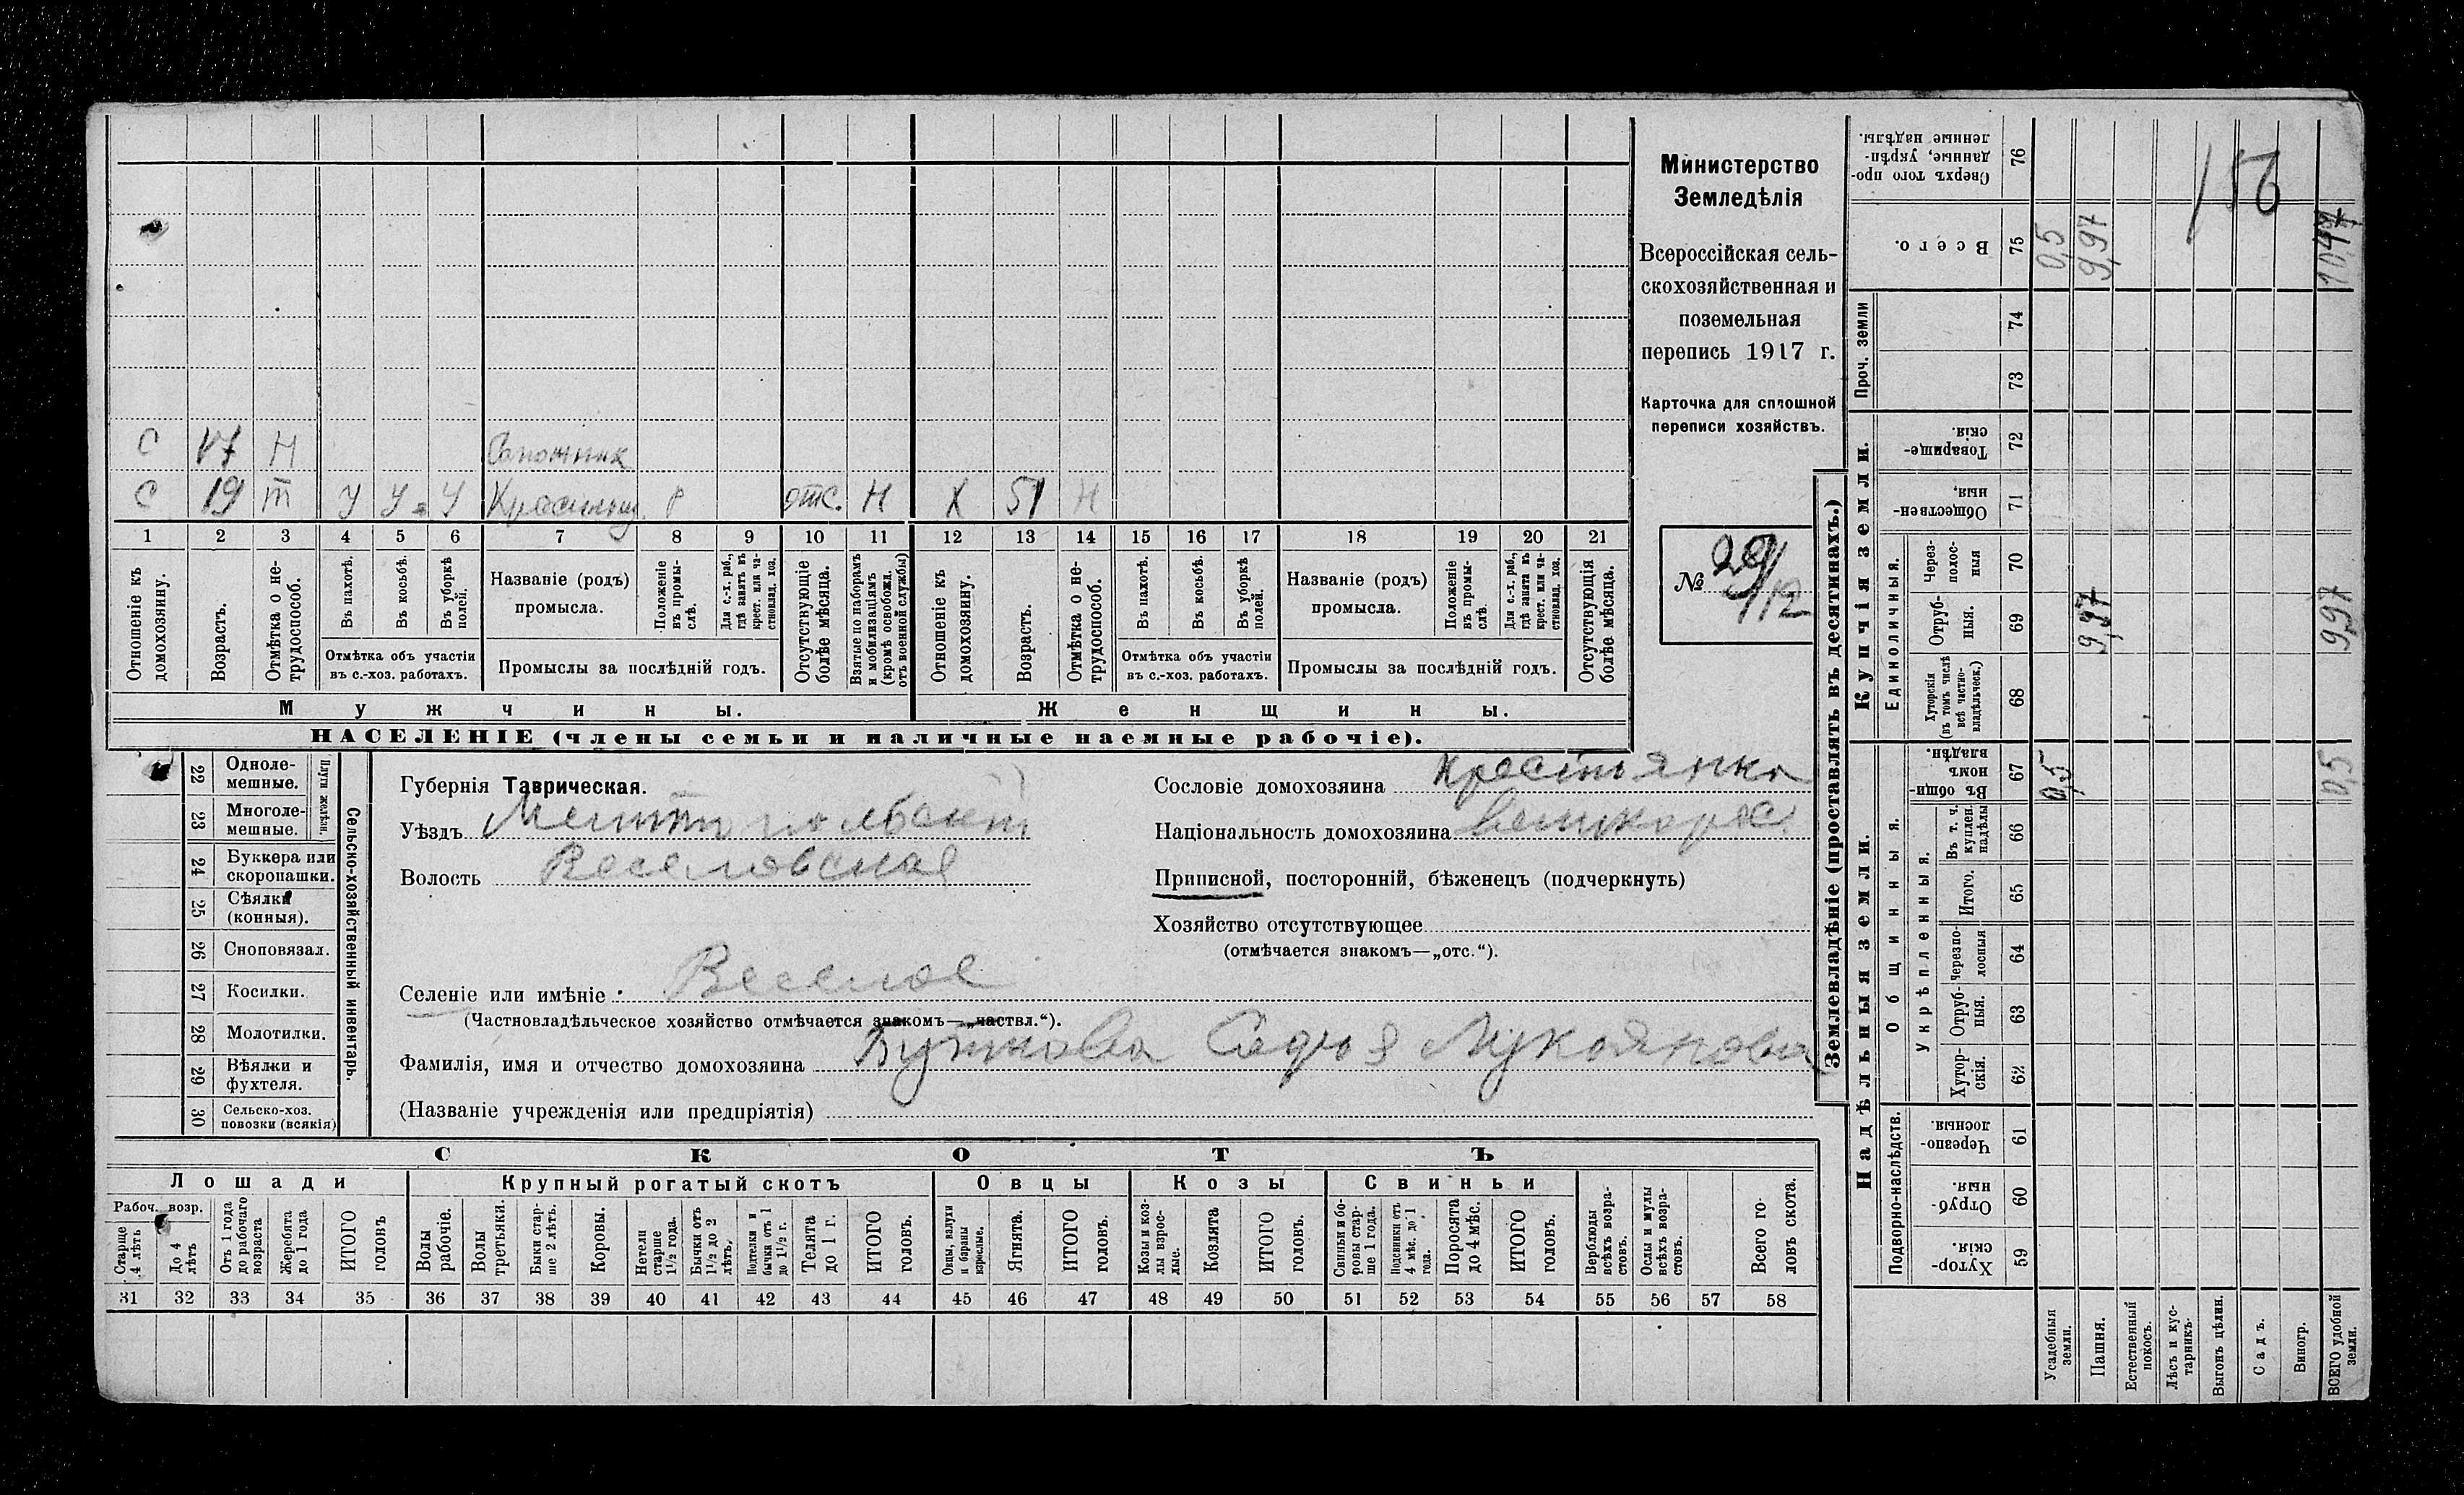 Министерство
Земледѣлія
Всероссійская сель-
скохозяйственная и
поземельная
перепись 1917 г.
Карточка для сплошной
переписи хозяйствъ.
№ 29/12
156
С 17 Н Сапожник
С 19 У У У Р отс. Н Х 51 Н
1 2 3 4 5 6 7 8 9 10 11 12 13 14 15 16 17 18 19 20 21
Отношеніе къ домохозяину.
Возрастъ.
Отмѣтка о не-трудоспособ.
Въ пахотѣ.
Въ косьбѣ.
Въ уборкѣ полей.
Отмѣтка объ участіи въ с.-хоз. работахъ.
Названіе (родъ) промысла.
Положеніе въ промы-слѣ.
Для с.-х. раб., гдѣ занятъ въ крест. или ча-стновлад. хоз.
Промыслы за послѣдній годъ.
Отсутствующіе болѣе мѣсяца.
Взятые по наборамъ и мобилизаціямъ (кромѣ освобожд. отъ военной службы)
Отношеніе къ домохозяину.
Возрастъ.
Отмѣтка о не-трудоспособ.
Въ пахотѣ.
Въ косьбѣ.
Въ уборкѣ полей.
Отмѣтка объ участіи въ с.-хоз. работахъ.
Названіе (родъ) промысла.
Положеніе въ промы-слѣ.
Для с.-х. раб., гдѣ занята въ крест. или ча-стновлад. хоз.
Промыслы за послѣдній годъ.
Отсутствующія болѣе мѣсяца.
Мужчины. Женщины.
НАСЕЛЕНІЕ (члены семьи и наличные наемные рабочіе).
22 Одноле-мешные.
23 Многоле-мешные.
Плуги желѣзн.
24 Буккера или скоропашки.
25 Сѣялки (конныя).
26 Сноповязал.
27 Косилки.
28 Молотилки.
29 Вѣялки и фухтеля.
30 Сельско-хоз. повозки (всякія)
Сельско-хозяйственный инвентарь.
Губернія Таврическая.
Уѣздъ
Волость Веселовская
Селеніе или имѣніе Веселое
(Частновладѣльческое хозяйство отмѣчается знакомъ—„частвл.“).
Фамилія, имя и отчество домохозяина
(Названіе учрежденія или предпріятія)
Сословіе домохозяина Крестьянка
Національность домохозяина Великорос.
Приписной, посторонній, бѣженецъ (подчеркнуть)
Хозяйство отсутствующее
(отмѣчается знакомъ—„отс.“).
СКОТЪ
Лошади Крупный рогатый скотъ Овцы Козы Свиньи
Рабоч. возр.
Старше 4 лѣтъ
До 4 лѣтъ
Отъ 1 года до рабочаго возраста
Жеребята до 1 года
ИТОГО головъ
Волы рабочіе.
Волы третьяки.
Быки стар-ше 2 лѣтъ.
Коровы.
Нетели старше 1½ года.
Бычки отъ 1½ до 2 лѣтъ.
Подтелки и бычки отъ 1 до 1½ г.
Телята до 1 г.
ИТОГО головъ.
Овцы, валухи и бараны взрослые.
Ягнята.
ИТОГО головъ.
Козы и коз-лы взрос-лые.
Козлята
ИТОГО головъ.
Свиньи и бо-ровы стар-ше 1 года.
Подсвинки отъ 4 мѣс. до 1 года.
Поросята до 4 мѣс.
ИТОГО головъ.
Верблюды всѣхъ возра-стовъ.
Ослы и мулы всѣхъ возра-стовъ.
Всего го-ловъ скота.
31 32 33 34 35 36 37 38 39 40 41 42 43 44 45 46 47 48 49 50 51 52 53 54 55 56 57 58
Землевладѣніе (проставлять въ десятинахъ.)
Купчія земли.
Надѣльныя земли.
Сверхъ того про-данные, укрѣп-ленные надѣлы. 76
Всего. 75 0,5 9,97 10,47
Проч. земли
74
73
Товарище-скія. 72
Обществен-ныя. 71
Единоличныя.
Через-полос-ныя 70
Отруб-ныя. 69 9,97 9,97
Хуторскія (въ томъ числѣ всѣ частно-владѣльческ.) 68
Общинныя.
Въ общи-номъ владѣн. 67 0,5 0,5
Укрѣпленныя.
Въ т. ч. куплен. надѣлы 66
Итого. 65
Черезпо-лосныя 64
Отруб-ныя. 63
Хутор-скія. 62
Подворно-наслѣдств.
Черезпо-лосныя. 61
Отруб-ныя. 60
Хутор-скія. 59
Усадебныя земли.
Пашня.
Естественный покосъ.
Лѣсъ и кус-тарникъ.
Выгонъ цѣлин.
Садъ.
Виногр.
ВСЕГО удобной земли.